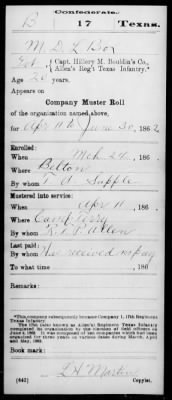 Confederate.
B 17 Texas.
M. D. L. Box
Pvt., Capt. Hillery M. Bouldin's Co.,
Allen's Reg't Texas Infantry.*
Age 20 years.
Appears on
Company Muster Roll
of the organization named above,
for Apr 11 to June 30, 1862
Enrolled:
When Mch 24, 186
Where Belton
By whom T. A. Supple
Mustered into service:
When Apr 11, 186
Where Camp Terry
By whom R. T. P. Allen
Last paid:
By whom Has received no pay
To what time , 186
Remarks:
*This company subsequently became Company I, 17th Regiment
Texas Infantry.
The 17th (also known as Allen's) Regiment Texas Infantry
completed its organization by the election of field officers on
June 9, 1862. It was composed of ten companies which had been
organized for three years on various dates during March, April
and May, 1862.
Book mark:
L H Martin
(642) Copyist.